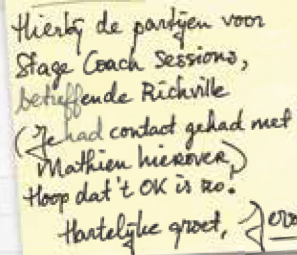 Hierbij de partijen voor
Stage Coach Sessions,
betreffende Richville
(Je had contact gehad met
Mathien hierover)
Hoop dat 't OK is zo.
Hartelijke groet,